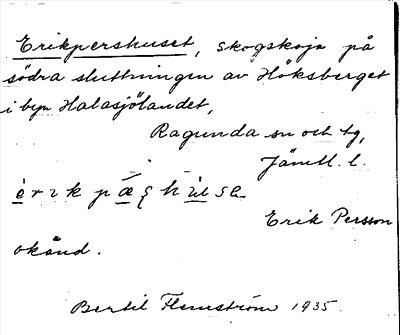 Erikpershuset, skogskoja på
södra sluttningen av Höksberget
i byn Halasjölandet,
Ragunda sn och tg,
Jämtl. l.
Erik Persson
okänd.
Bertil Flemström 1935.